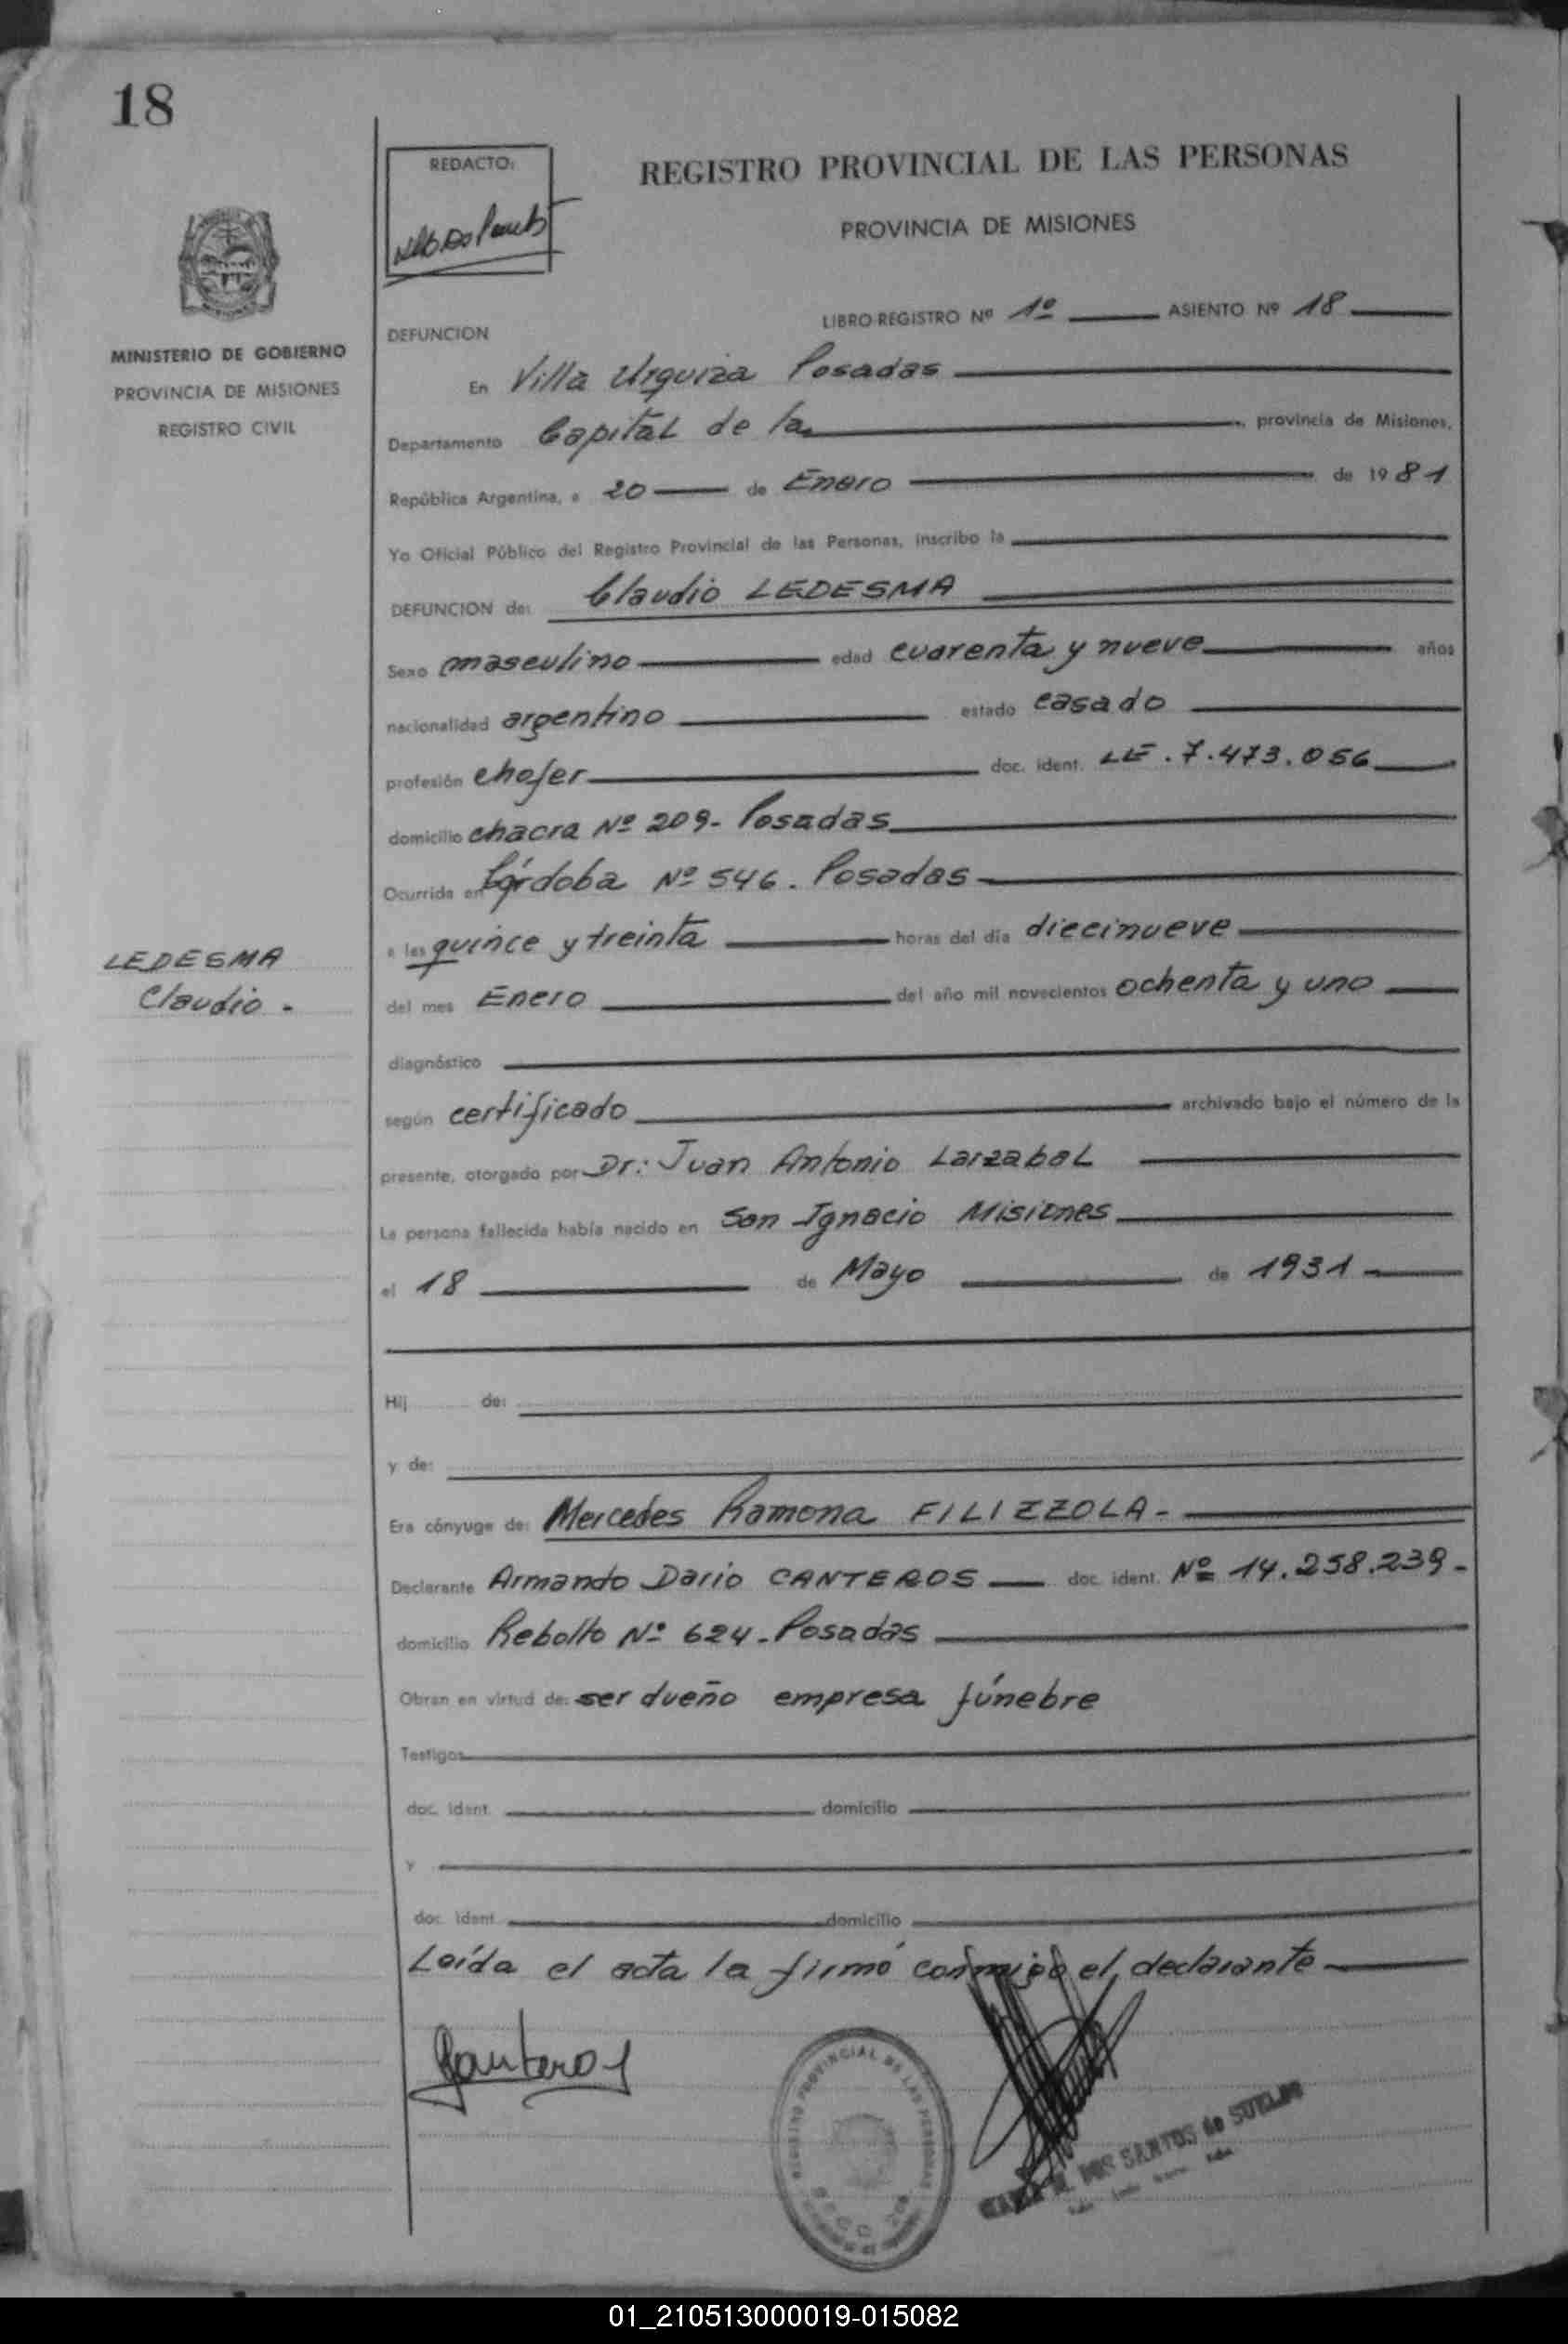 18
REDACTO:
REGISTRO PROVINCIAL DE LAS PERSONAS
PROVINCIA DE MISIONES
MINISTERIO DE GOBIERNO
PROVINCIA DE MISIONES
REGISTRO CIVIL
LIBRO-REGISTRO Nº 1º ASIENTO Nº 18
DEFUNCION
En Villa Urquiza Posadas
Departamento Capital de la, provincia de Misiones,
República Argentina, a 20 de Enero de 1981
Yo Oficial Público del Registro Provincial de las Personas, inscribo la
DEFUNCION de: Claudio LEDESMA
Sexo masculino edad cuarenta y nueve años
nacionalidad argentino estado casado
profesión chofer doc. ident. LE. 7.473.056
domicilio chacra Nº 209- Posadas
Ocurrida en Córdoba Nº 546. Posadas
a las quince y treinta horas del día diecinueve
LEDESMA
Claudio -
del mes Enero del año mil novecientos ochenta y uno
diagnóstico
según certificado archivado bajo el número de la
presente, otorgado por Dr: Juan Antonio Larzabal
La persona fallecida había nacido en San Ignacio Misiones
el 18 de Mayo de 1931
Hij de:
y de:
Era cónyuge de: Mercedes Ramona FILIZZOLA-
Declarante Armando Dario CANTEROS doc. ident. Nº 14.258.239-
domicilio Rebollo Nº 624-Posadas
Obran en virtud de: ser dueño empresa fúnebre
Testigos
doc. ident. domicilio
y
doc. ident. domicilio
Leída el acta la firmó conmigo el declarante
Canteros
REGISTRO PROVINCIAL DE LAS PERSONAS
DOS SANTOS de SUELDO
01_210513000019-015082